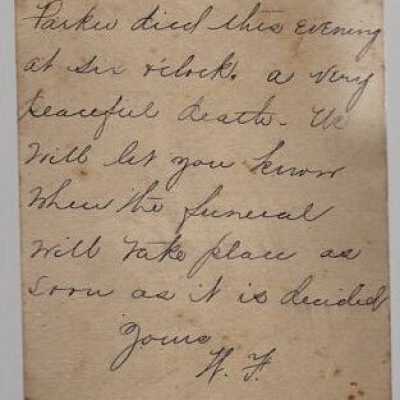 Parker died this evening
at six o'clock. a very
peaceful death. We
will let you know
when the funeral
will take place as
soon as it is decided
Yours
W. F.